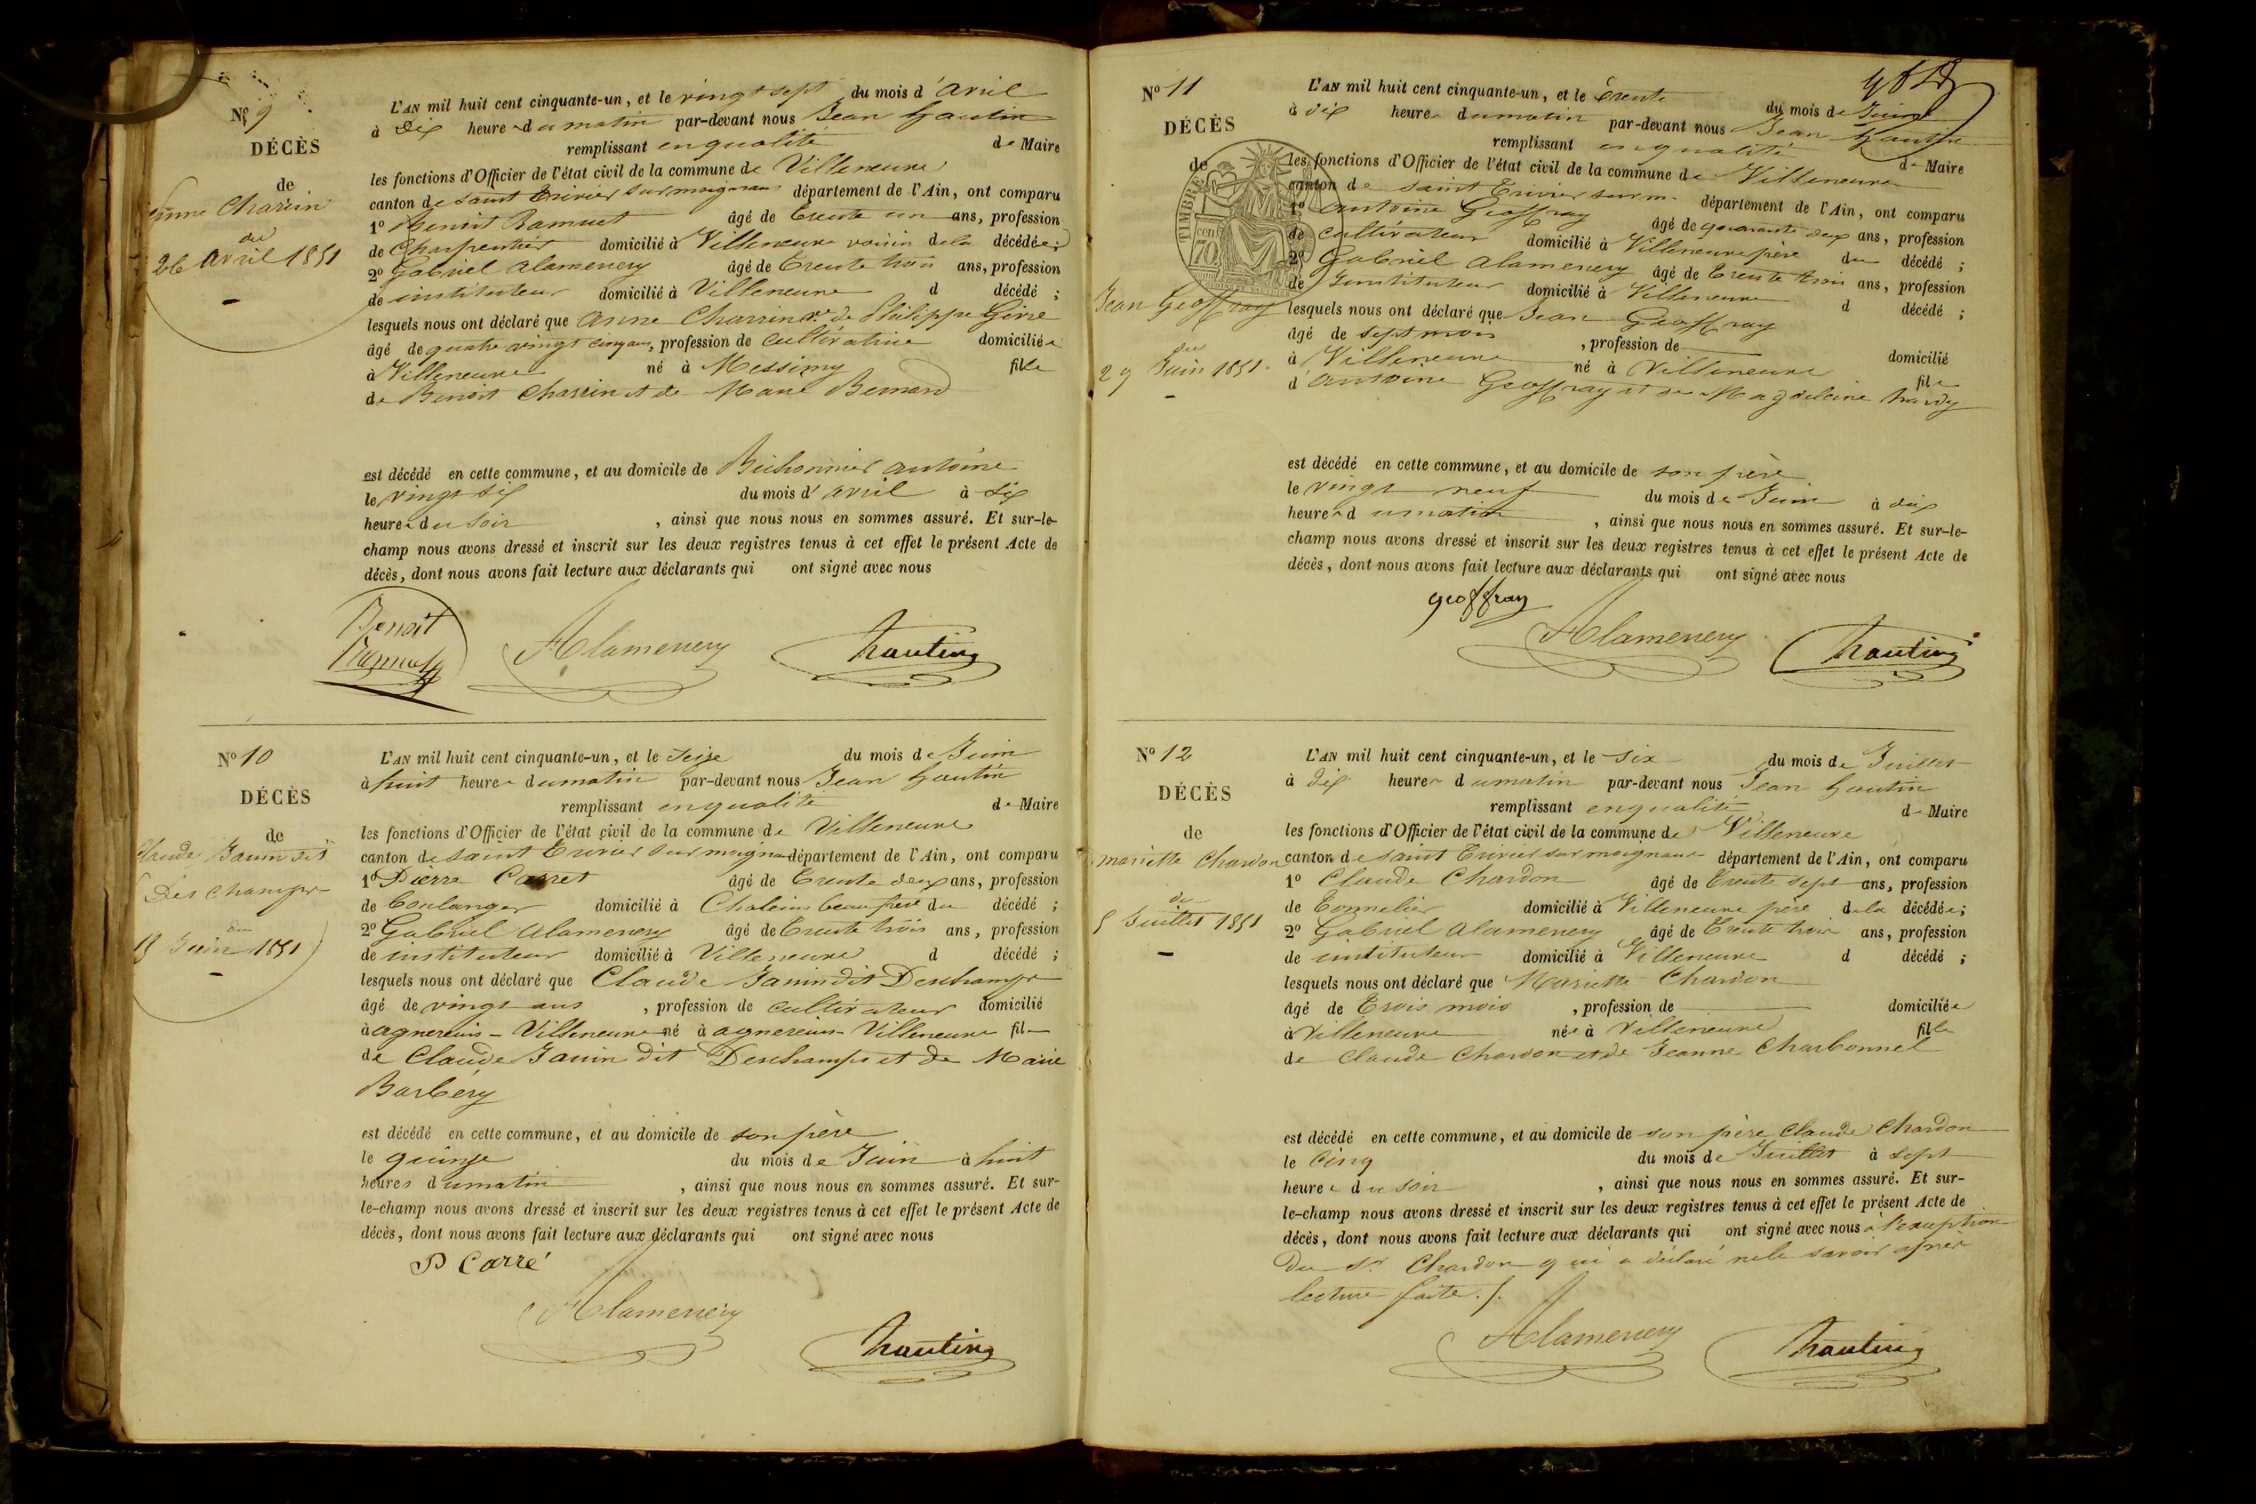 No 9
DÉCÈS
de
Anne Charrin
du
26 avril 1851
L'AN mil huit cent cinquante-un, et le vingt sept du mois d'avril
à dix heures du matin par-devant nous Jean hautin
remplissant en qualité de Maire
les fonctions d'Officier de l'état civil de la commune de Villeneuve
canton de saint Trivier sur moignans département de l'Ain, ont comparu
1º Benoit Ramuet âgé de trente un ans, profession
de Charpentier domicilié à Villeneuve voisin de la décédée;
2º Gabriel alamenery âgé de trente trois ans, profession
de instituteur domicilié à Villeneuve d décédé ;
lesquels nous ont déclaré que anne Charrin ve de Philippe
âgé de quatre vingt cinq ans, profession de cultivatrice domiciliée
à Villeneuve né à Messimy fille
de Benoit Charrin et de Marie Bernard
est décédé en cette commune, et au domicile de Bichonnier antoine
le vingt six du mois d'avril à six
heures du soir , ainsi que nous nous en sommes assuré. Et sur-le-
champ nous avons dressé et inscrit sur les deux registres tenus à cet effet le présent Acte de
décès, dont nous avons fait lecture aux déclarants qui ont signé avec nous
Benoit
Ramuet
Alamenery hautin
No 10
DÉCÈS
de
Claude Janin dit
Des champs
du
15 Juin 1851
L'AN mil huit cent cinquante-un, et le seize du mois de Juin
à huit heures du matin par-devant nous Jean hautin
remplissant en qualité de Maire
les fonctions d'Officier de l'état civil de la commune de Villeneuve
canton de saint Trivier sur moignans département de l'Ain, ont comparu
1º Pierre Carret âgé de trente deux ans, profession
de boulanger domicilié à Chaleins beau frère du décédé ;
2º Gabriel alamenery âgé de trente trois ans, profession
de instituteur domicilié à Villeneuve d décédé ;
lesquels nous ont déclaré que Claude Janin dit Deschamps
âgé de vingt ans , profession de cultivateur domicilié
à agnereins - Villeneuve né à agnereins - Villeneuve fils
de Claude Janin dit Deschamps et de Marie
Barbéry
est décédé en cette commune, et au domicile de son père
le quinze du mois de Juin à huit
heures du matin , ainsi que nous nous en sommes assuré. Et sur-
le-champ nous avons dressé et inscrit sur les deux registres tenus à cet effet le présent Acte de
décès, dont nous avons fait lecture aux déclarants qui ont signé avec nous
P Carré
Alamenery
hautin
No 11
DÉCÈS
de
TIMBRE
cent
70
Jean Geoffray
du
29 Juin 1851
L'AN mil huit cent cinquante-un, et le trente du mois de Juin
à dix heures du matin par-devant nous Jean hautin
remplissant en qualité de Maire
les fonctions d'Officier de l'état civil de la commune de Villeneuve
canton de saint Trivier sur m. département de l'Ain, ont comparu
1º antoine Geoffray âgé de quarante deux ans, profession
de cultivateur domicilié à Villeneuve père du décédé ;
2º Gabriel alamenery âgé de trente trois ans, profession
de Jnstituteur domicilié à Villeneuve d décédé ;
lesquels nous ont déclaré que Jean Geoffray
âgé de sept mois , profession de domicilié
à Villeneuve né à Villeneuve fils
d'antoine Geoffray et de Magdeleine
est décédé en cette commune, et au domicile de son père
le vingt neuf du mois de Juin à dix
heures du matin , ainsi que nous nous en sommes assuré. Et sur-le-
champ nous avons dressé et inscrit sur les deux registres tenus à cet effet le présent Acte de
décès, dont nous avons fait lecture aux déclarants qui ont signé avec nous
geoffray
Alamenery hautin
No 12
DÉCÈS
de
mariette Chardon
du
5 Juillet 1851
L'AN mil huit cent cinquante-un, et le six du mois de Juillet
à dix heures du matin par-devant nous Jean hautin
remplissant en qualité de Maire
les fonctions d'Officier de l'état civil de la commune de Villeneuve
canton de saint Trivier sur moignans département de l'Ain, ont comparu
1º Claude Chardon âgé de trente sept ans, profession
de Tonnelier domicilié à Villeneuve père de la décédée;
2º Gabriel alamenery âgé de trente trois ans, profession
de instituteur domicilié à Villeneuve d décédé ;
lesquels nous ont déclaré que Mariette Chardon
âgé de trois mois , profession de domiciliée
à Villeneuve née à Villeneuve fille
de Claude Chardon et de Jeanne Charbonnel
est décédé en cette commune, et au domicile de son père Claude Chardon
le cinq du mois de Juillet à sept
heures du soir , ainsi que nous nous en sommes assuré. Et sur-
le-champ nous avons dressé et inscrit sur les deux registres tenus à cet effet le présent Acte de
décès, dont nous avons fait lecture aux déclarants qui ont signé avec nous à l'exception
du sr Chardon qui a déclaré ne le savoir après
lecture faite ./.
Alamenery hautin